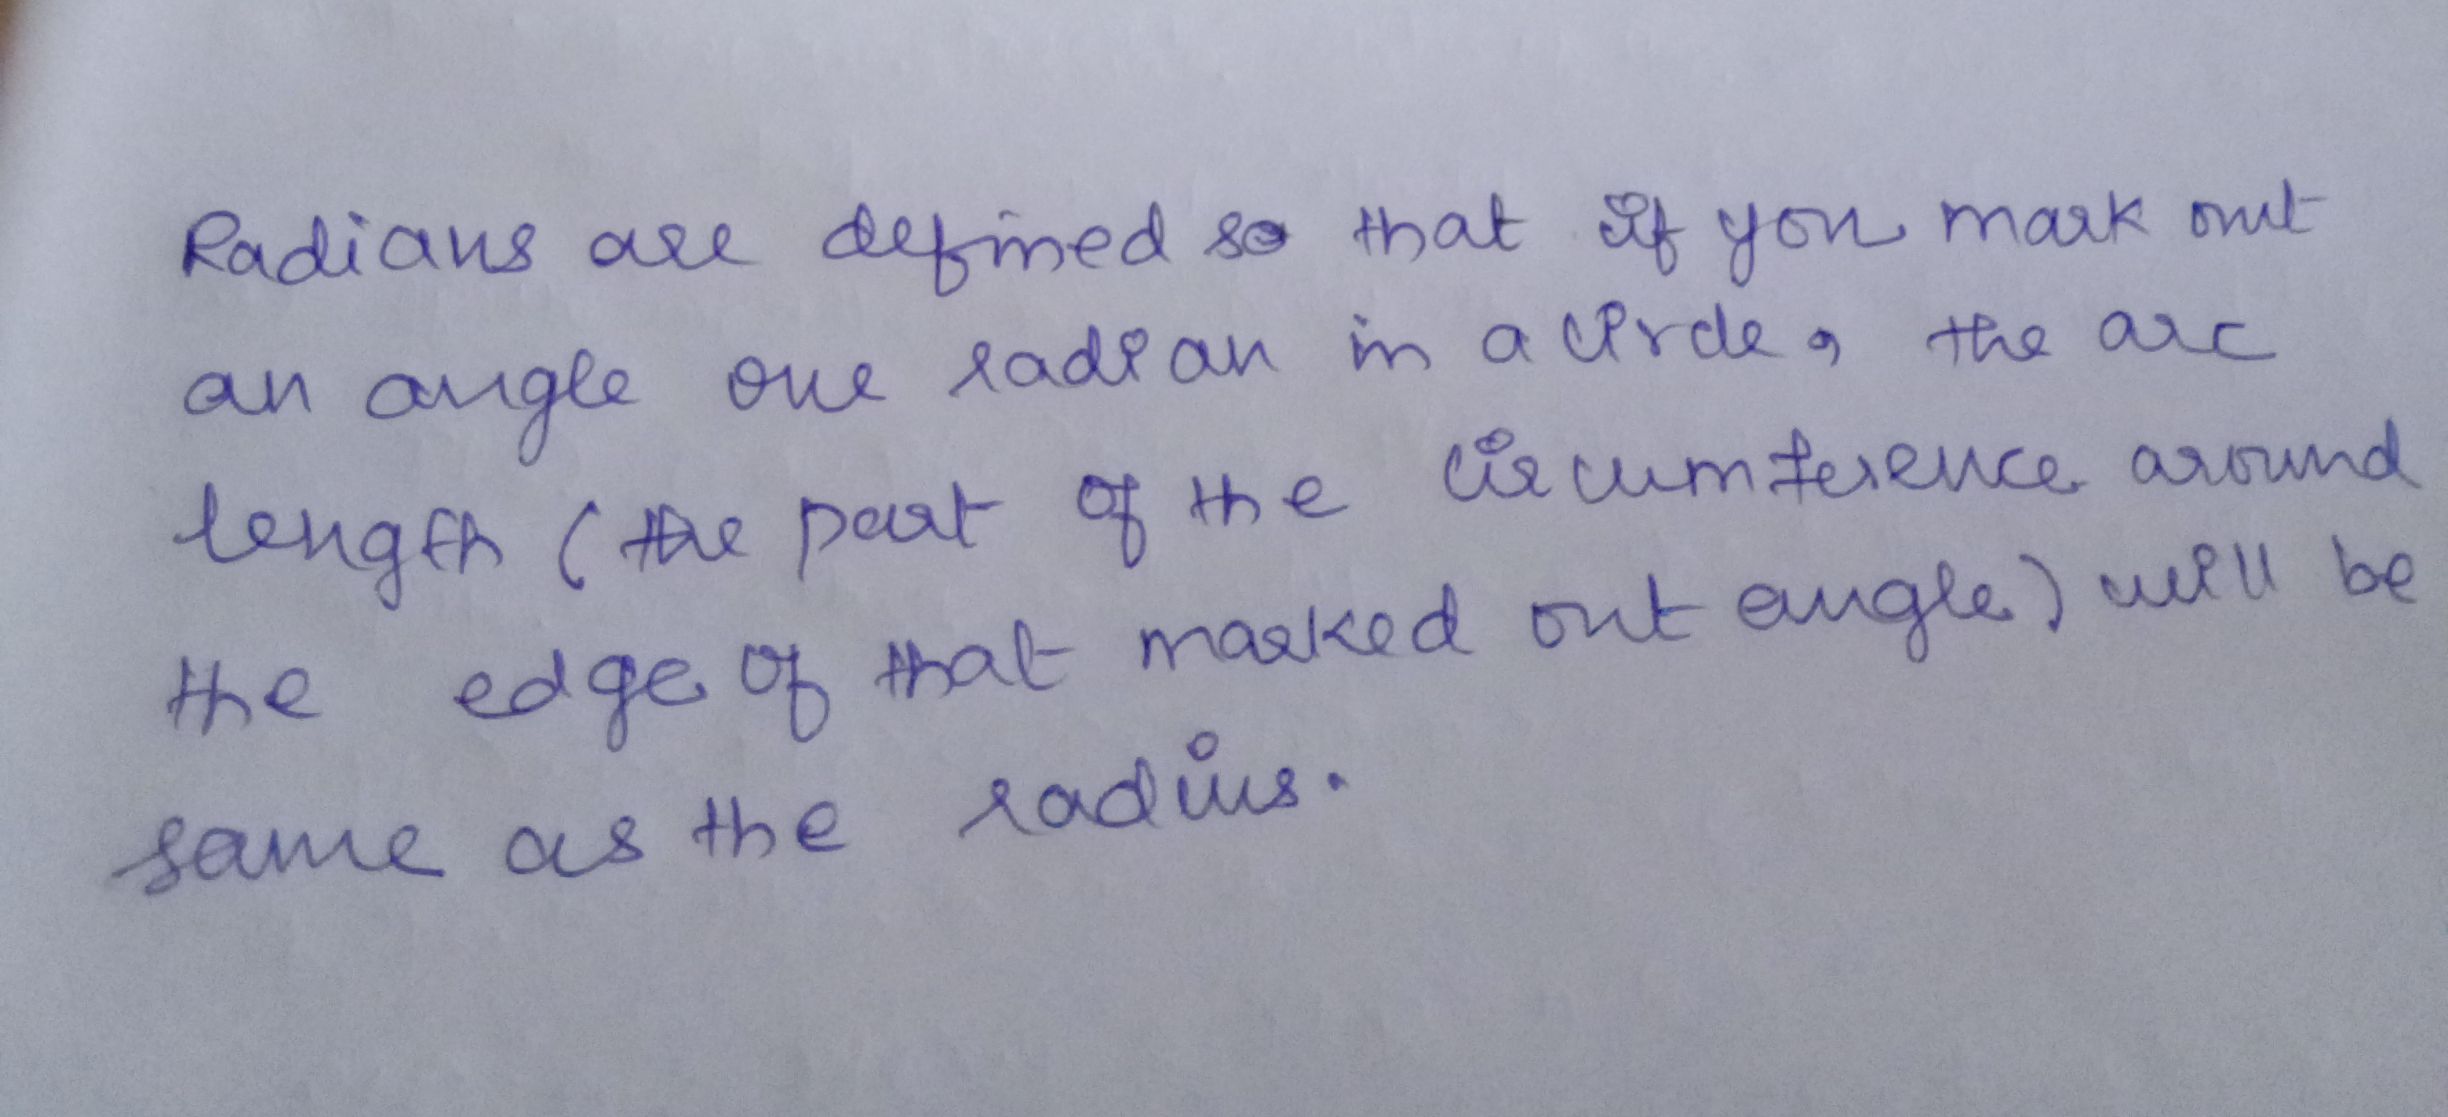 Radians are defined so that if you mark out
an angle one radian in a circle, the arc
length (the part of the circumference around
the edge of that marked out angle) will be
same as the radius.